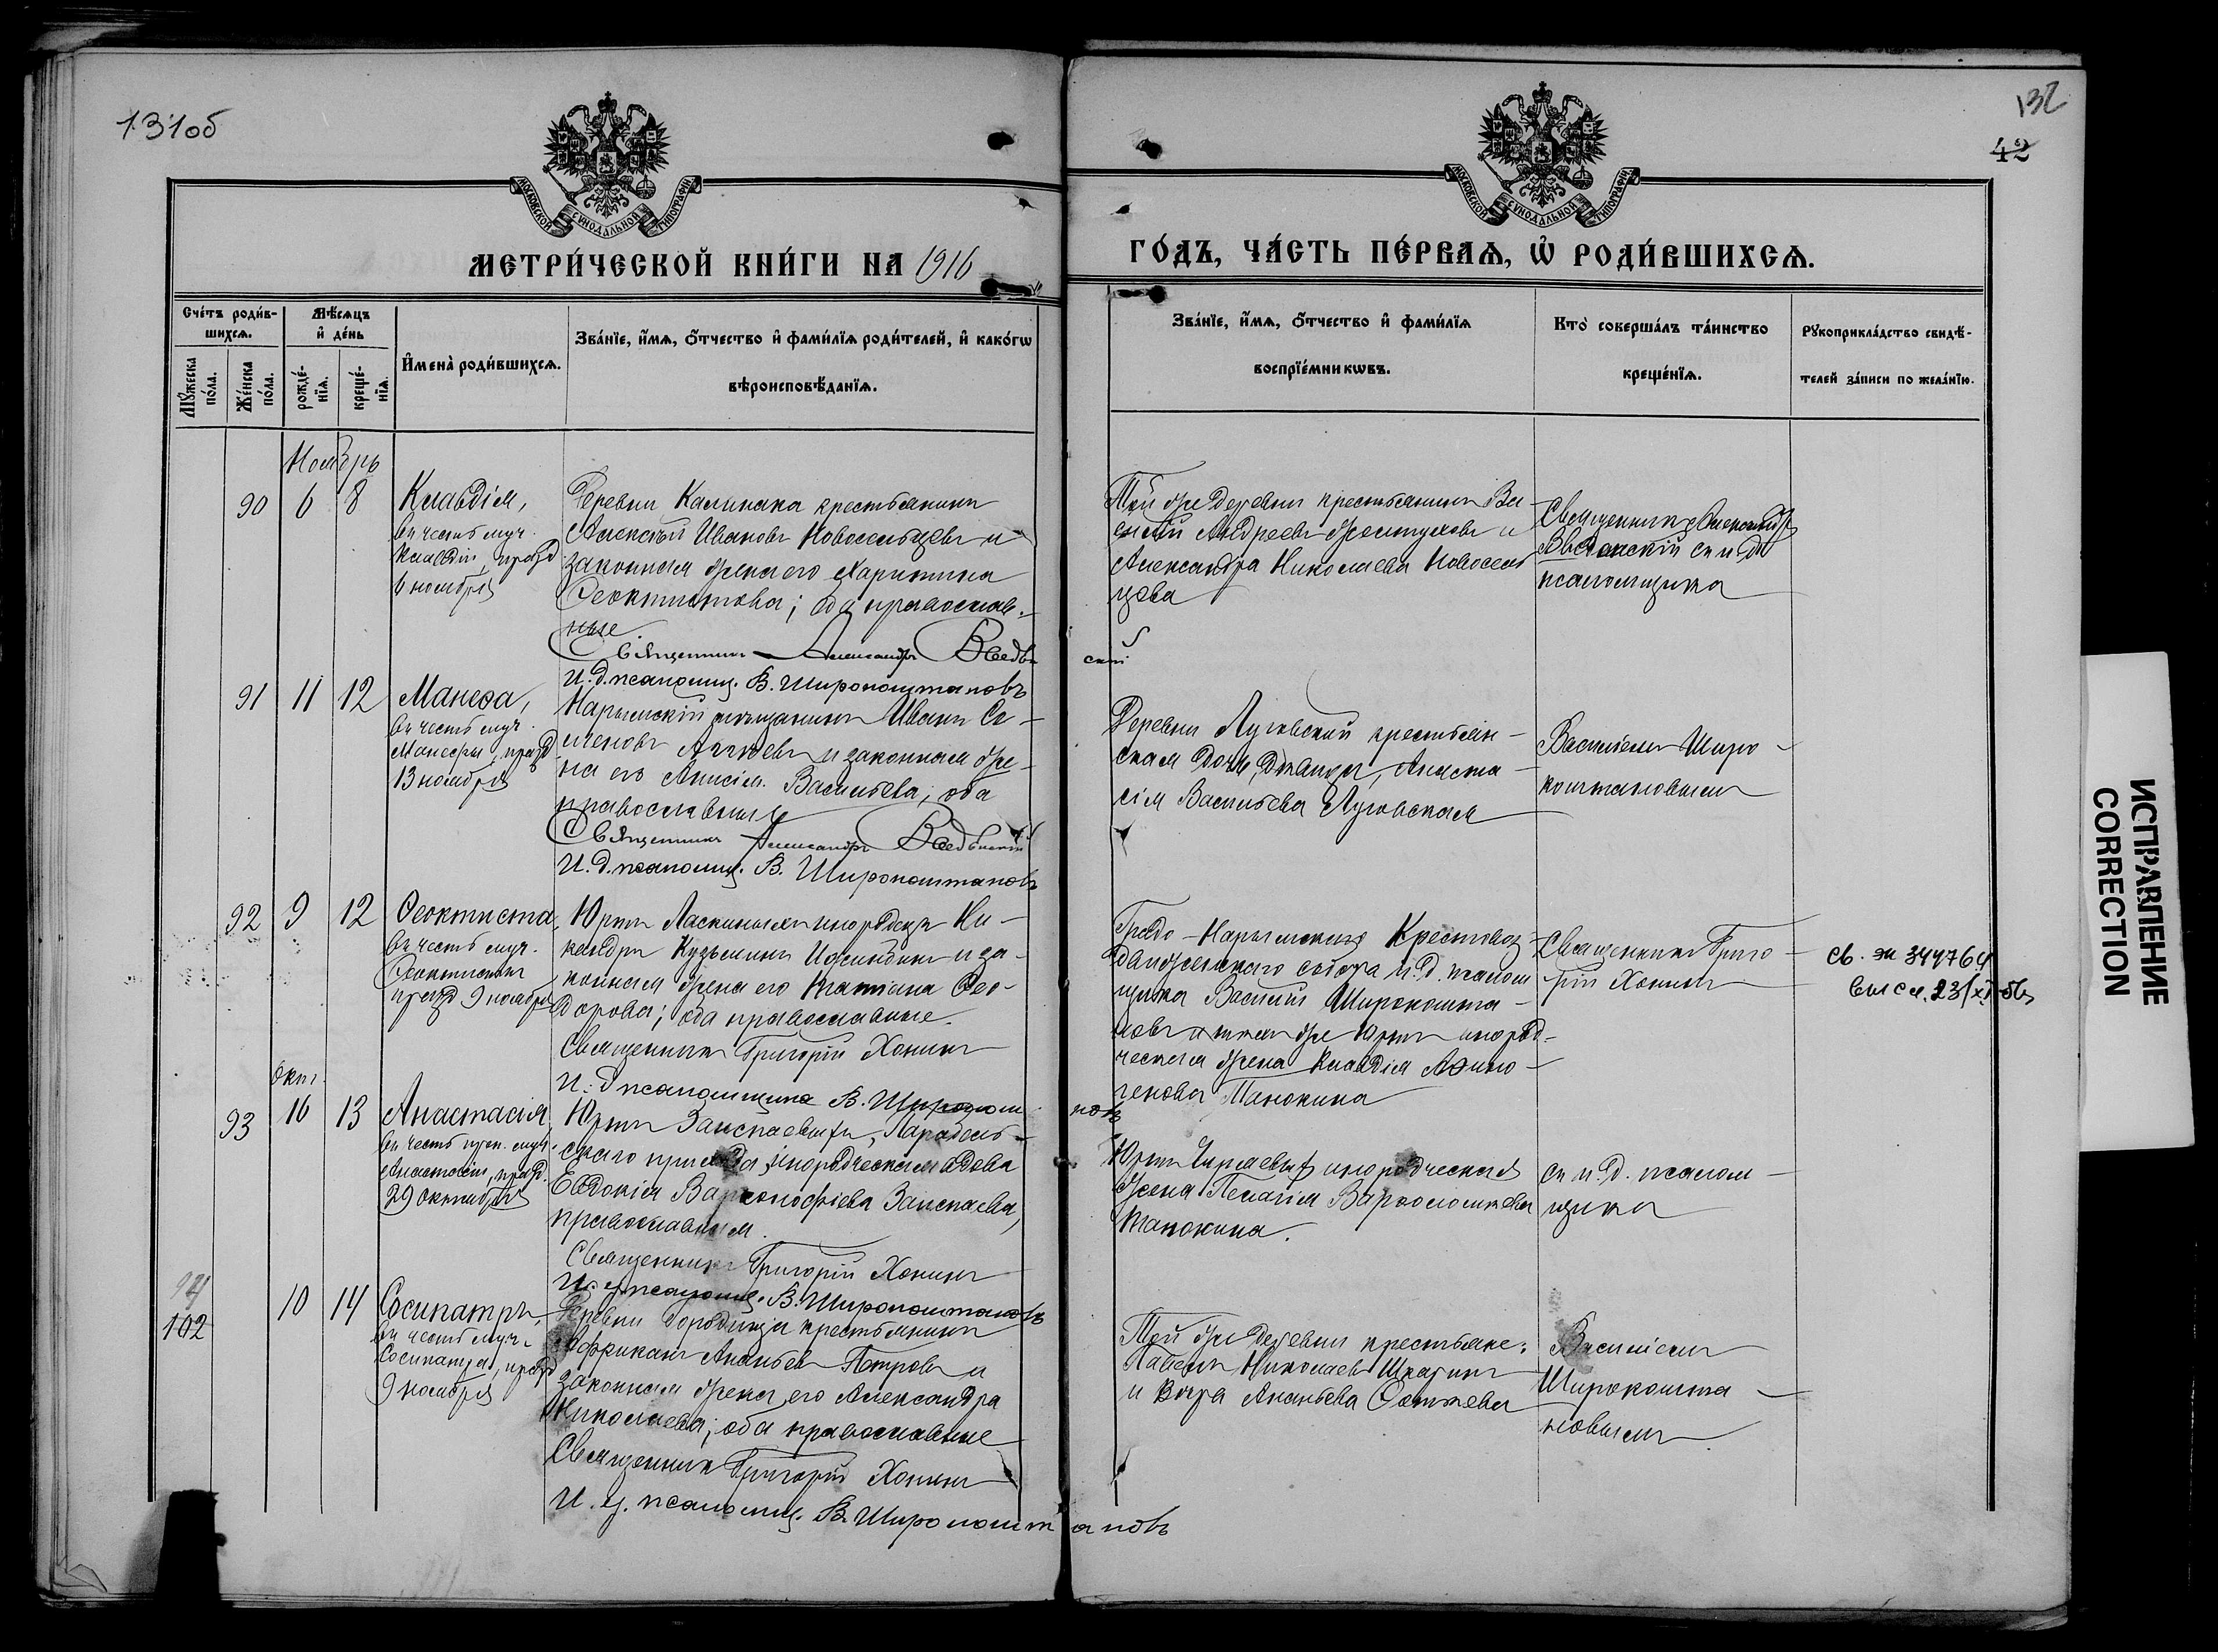 131об
132
42
МОСКОВСКОЙ СУНОДАЛЬНОЙ ТИПОГРАФІИ
МОСКОВСКОЙ СУНОДАЛЬНОЙ ТИПОГРАФІИ
МЕТРИ́ЧЕСКОЙ КНИ́ГИ НА 1916
ГО́ДЪ, ЧА́СТЬ ПЕ́РВАѦ, Ѡ҆ РОДИ́ВШИХСѦ.
Сче́тъ роди́в-
шихсѧ.
Мꙋ́жеска по́ла.
Же́нска по́ла.
Мѣ́сѧцъ
и҆ де́нь
рожде́-
нїѧ.
креще́-
нїѧ.
И҆мена̀ роди́вшихсѧ.
Зва́нїе, и҆́мѧ, ѻ҆́тчество и҆ фами́лїѧ роди́телей, и҆ како́гѡ
вѣроисповѣ́данїѧ.
Зва́нїе, и҆́мѧ, ѻ҆́тчество и҆ фами́лїѧ
воспрїе́мникѡвъ.
Кто̀ соверша́лъ та́инство
креще́нїѧ.
Рꙋкоприкла́дство свидѣ́-
телей за́писи по жела́нїю.
Ноябрь
90 6 8
Клавдія,
въ честь муч.
Клавдіи, празд
6 ноября
Деревни Калинака крестьянинъ
Алексѣй Ивановъ Новосельцевъ и
законная жена его Харитина
Ѳеоктистова; оба православ-
ные
Священникъ Александръ Введенскій
И.д.псаломщ. В. Широкоштановъ
Той же деревни крестьянинъ Ва-
силій Андреевъ и
Александра Николаева Новосель
цева
Священникъ Александръ
Введенскій съ и.д.
псаломщика
91 11 12
Манефа,
въ честь муч.
Манефы, празд
13 ноября
Нарымскій мѣщанинъ Иванъ Се-
меновъ и законная же-
на его Анисія Васильева; оба
православные
Священникъ Александръ Введенскій
И.д.псаломщ. В. Широкоштановъ
Деревни Луговской крестьян-
ская дочь, дѣвица, Анаста-
сія Васильева Луговская
Василіемъ Широ-
коштановымъ
92 9 12
Ѳеоктиста,
въ честь муч.
Ѳеоктисты
празд 9 ноября
Юртъ Ласкиныхъ инородецъ Ни-
кандръ Кузьминъ и за-
конная жена его Татіана Ѳео-
дорова; оба православные.
Священникъ Григорій Хонинъ
И.д псаломщика В. Широкош новъ
Градо-Нарымскаго Крестовоз-
движенскаго собора и.д. псалом
щика Василій Широкошта-
новъ и тѣхъ же Юртъ инород-
ческая жена Клавдія Аѳино-
генова Танокина
Священникъ Григо-
рій Хонинъ
св. за 344764
высл. 23/XI-56
Окт.
93 16 13
Анастасія,
въ честь преп. муч.
Анастасіи, празд.
29 октября
Юртъ Заиспаевыхъ, Парабель-
скаго прихода, инородческая вдова
Евдокія Варсонофіева Заиспаева,
православная.
Священникъ Григорій Хонинъ
И.д псаломщ. В. Широкоштановъ
Юртъ инородческая
жена Пелагія Варѳоломѣева
Танокина.
съ и.д. псалом-
щика
94
102
10 14
Сосипатръ,
въ честь муч.
Сосипатра, празд
9 ноября
Деревни Городища крестьянинъ
Африканъ Ананьевъ Петровъ и
законная жена его Александра
Николаева; оба православные
Священникъ Григорій Хонинъ
И.д. псаломщ. В. Широкоштановъ
Той же деревни крестьяне:
Павелъ Николаевъ Шкаринъ
и Вѣра Ананьева Фатѣева
Василіемъ
Широкошта-
новымъ
ИСПРАВЛЕНИЕ
CORRECTION